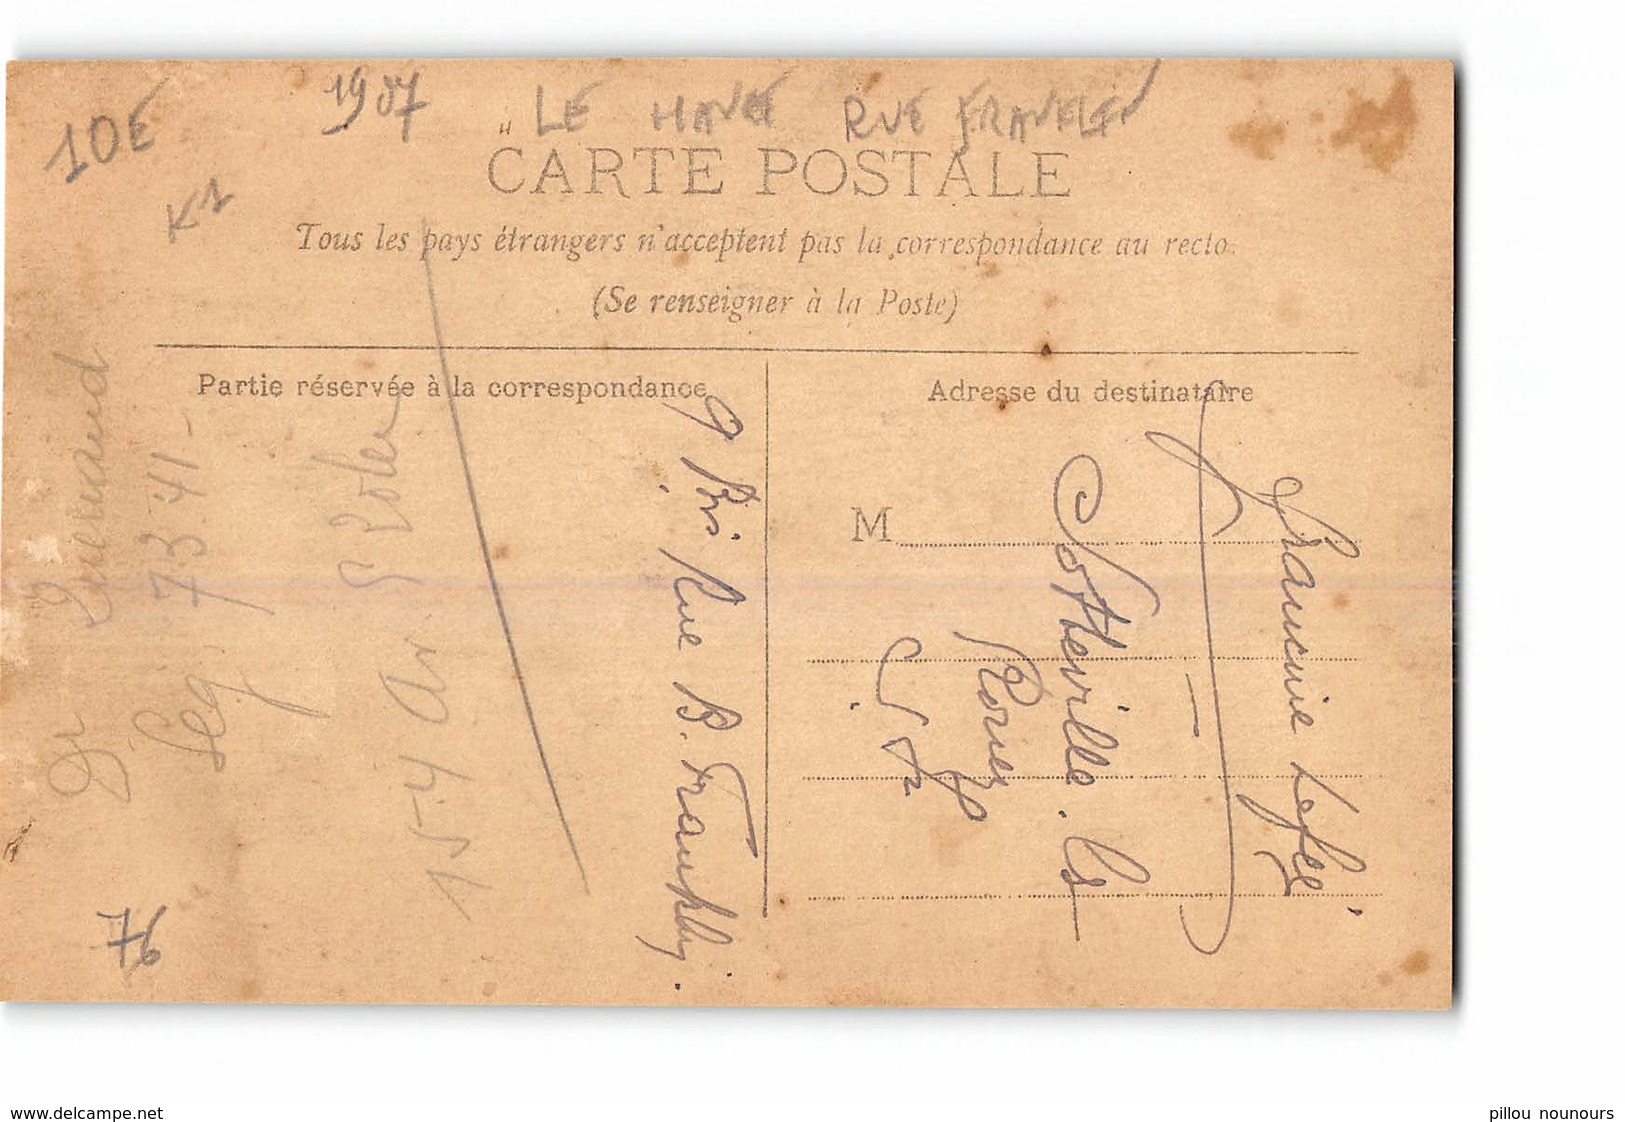 10€
1907 LE HAVRE RUE FRANKLIN
K1
CARTE POSTALE
Tous les pays étrangers n'acceptent pas la correspondance au recto.
(Se renseigner à la Poste)
Partie réservée à la correspondance
Adresse du destinataire
M
Francine Lefez
Sotteville. les
Rouen
9 Bis Rue B. Franklin.
Dr Quemand
Seg 73-41-
154 Av.
76
www.delcampe.net
pillou nounours